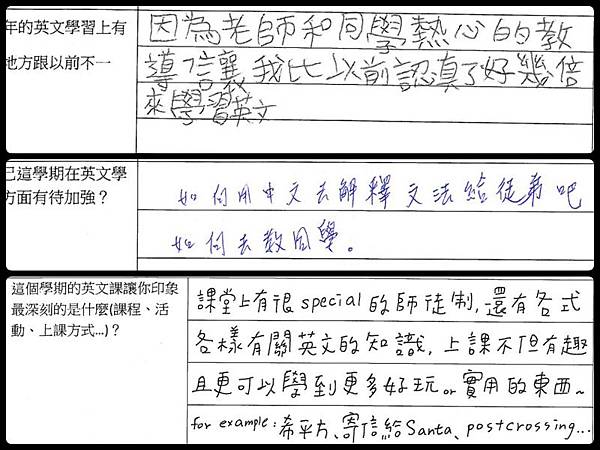 年的英文學習上有
地方跟以前不一
因為老師和同學熱心的教
導信讓我比以前認真了好幾倍
來學習英文
己這學期在英文學
方面有待加強？
如何用中文去解釋文法給徒弟吧
如何去教同學。
這個學期的英文課讓你印象
最深刻的是什麼(課程、活
動、上課方式…)？
課堂上有很special的師徒制,還有各式
各樣有關英文的知識,上課不但有趣
且更可以學到更多好玩or實用的東西~
for example:希平方、寄信給Santa、postcrossing...